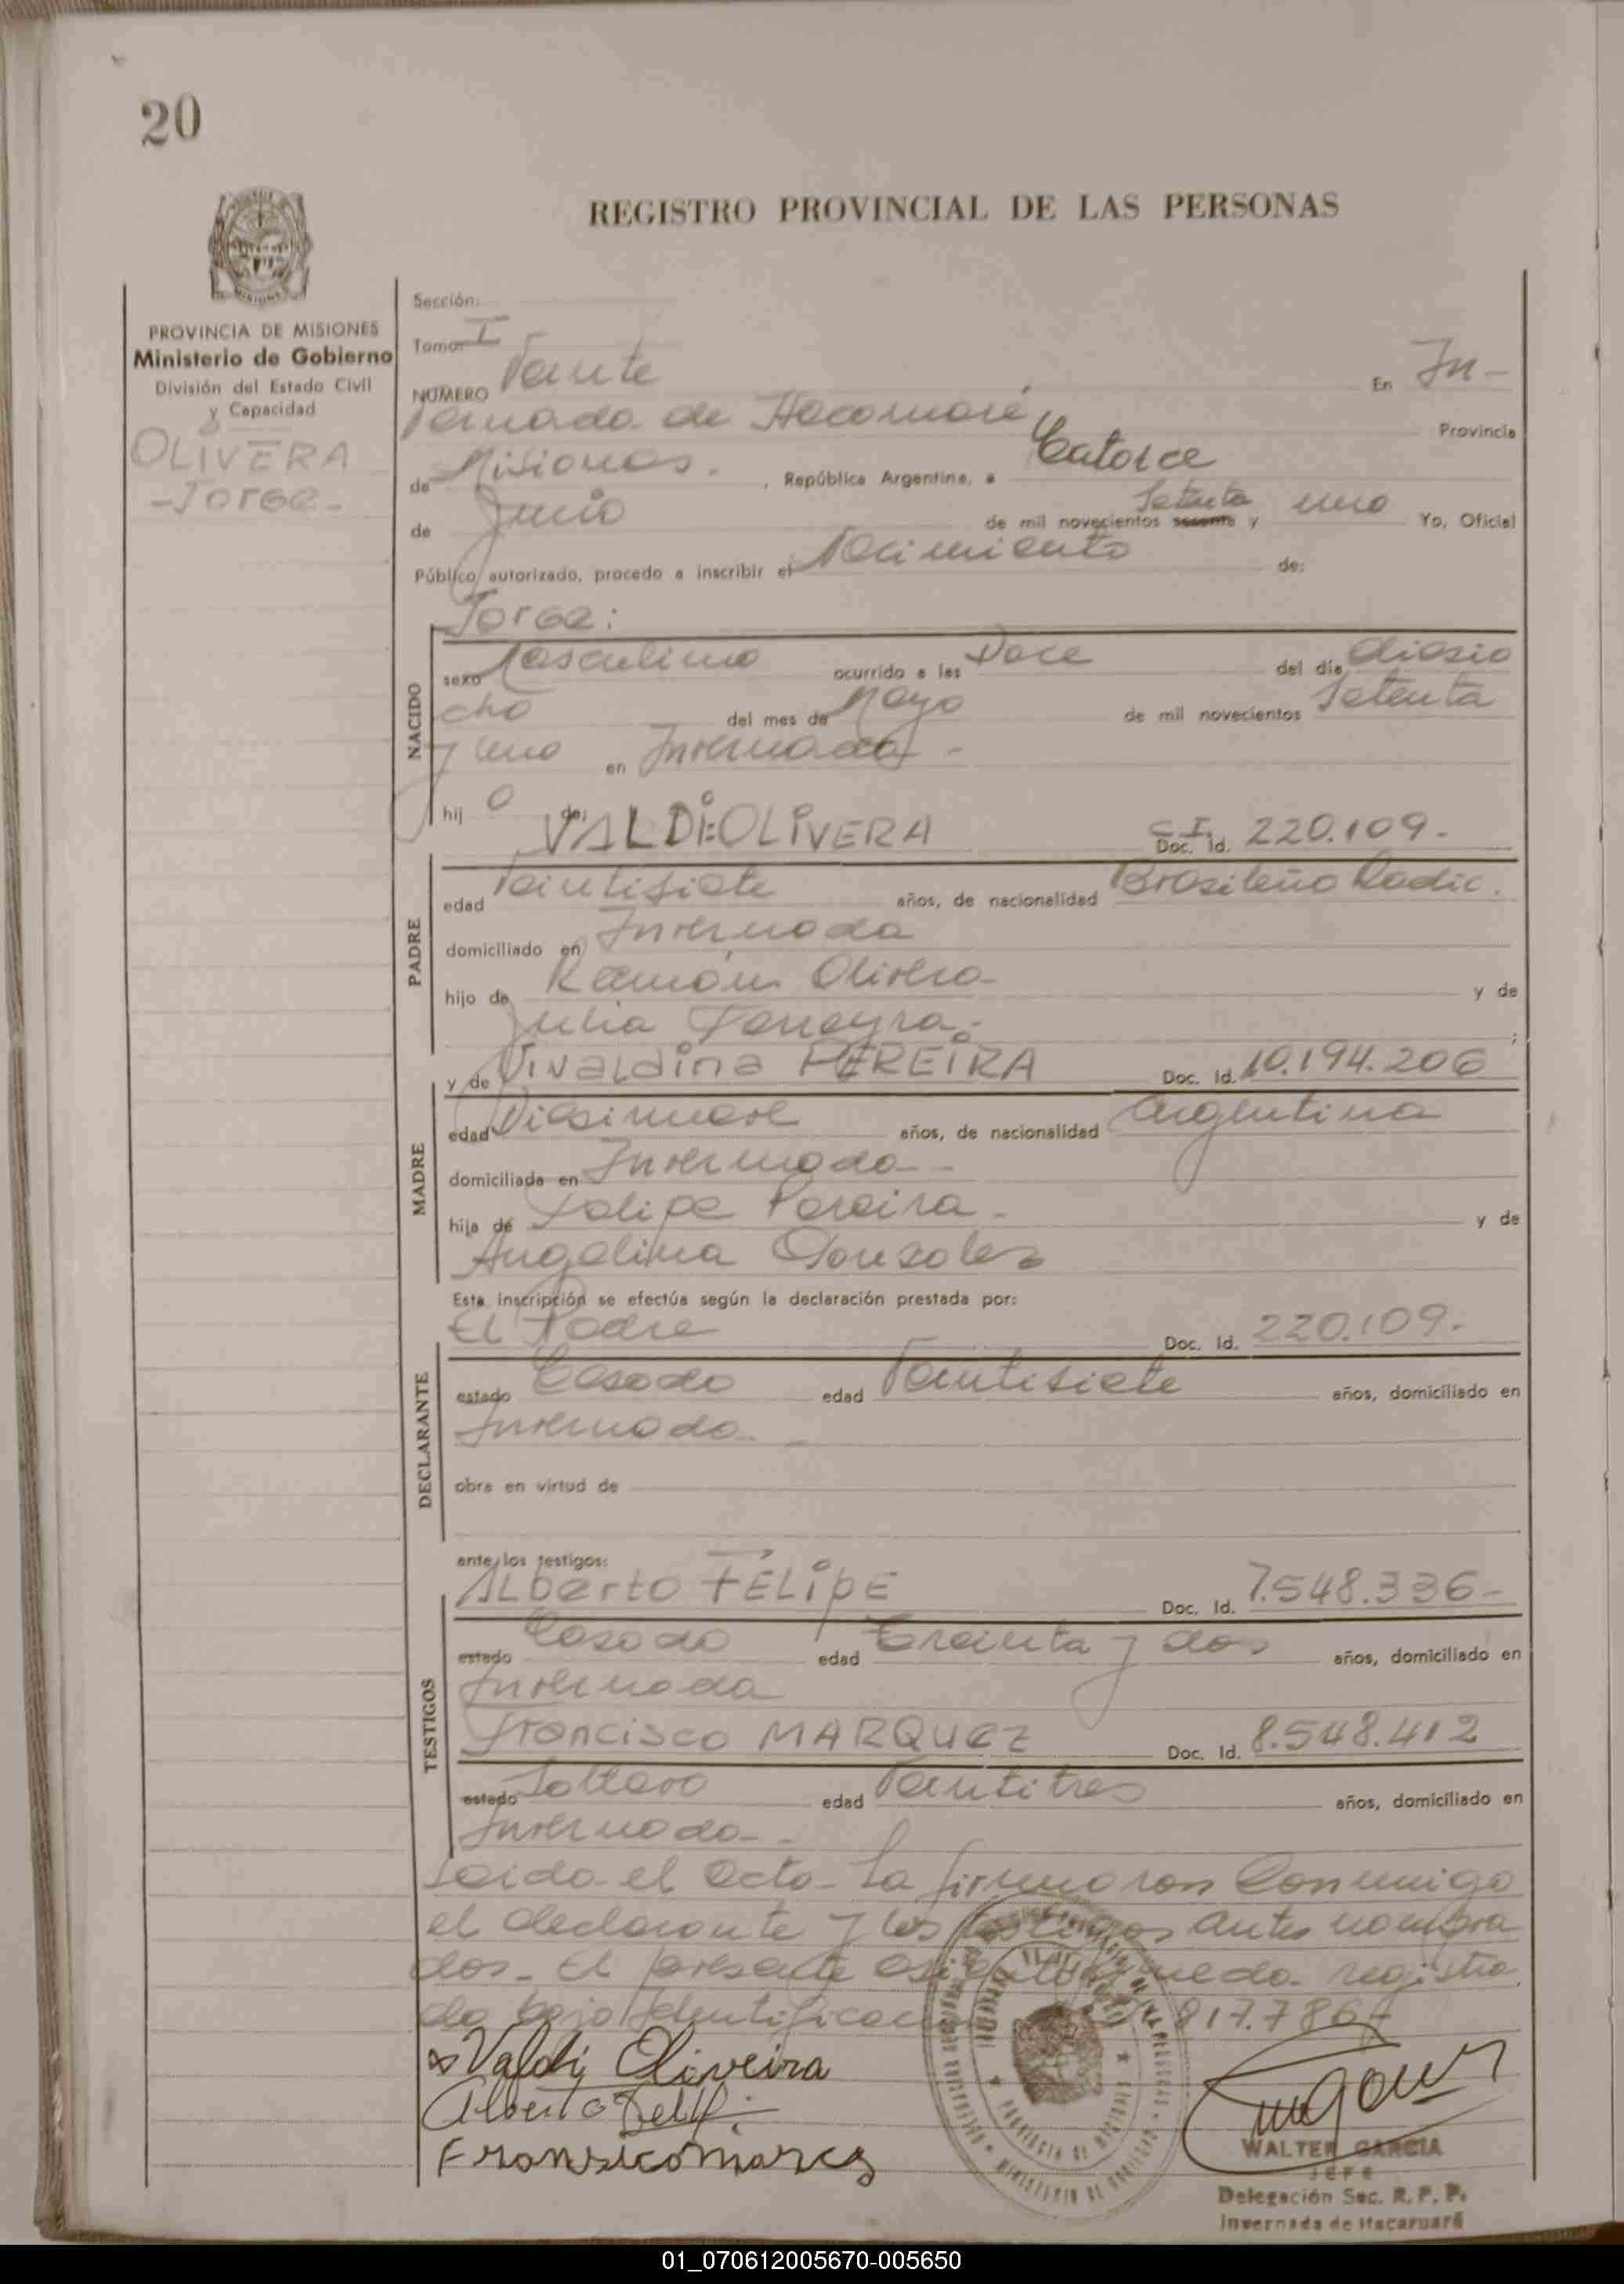 20
REGISTRO PROVINCIAL DE LAS PERSONAS
PROVINCIA DE MISIONES
Ministerio de Gobierno
División del Estado Civil
y Capacidad
OLIVERA
-Jorge-
Sección:
Tomo: I
NÚMERO Veinte En In-
vernada de Itacaruaré, Provincia
de Misiones. , República Argentina, a Catorce
de Junio de mil novecientos sesenta Setenta y uno Yo, Oficial
Público autorizado, procedo a inscribir el Nacimiento de:
Jorge:
NACIDO
sexo Masculino ocurrido a las Doce del día diesio
cho del mes de Mayo de mil novecientos Setenta
y uno en Invernada -
hij o de: VALDI OLIVERA C.I. Doc. Id. 220.109.-
PADRE
edad Veintisiete años, de nacionalidad Brasileño Radic.
domiciliado en Invernada
hijo de Ramón Olivera- y de
Julia Ferreyra.- ;
y de Vivaldina PEREIRA Doc. Id. 10.194.206
MADRE
edad Diesinueve años, de nacionalidad Argentina
domiciliada en Invernada--
hija de Felipe Pereira - y de
Angelina Gonsales
Esta inscripción se efectúa según la declaración prestada por:
El Padre Doc. Id. 220.109.-
DECLARANTE
estado Casado edad Veintisiete años, domiciliado en
Invernada -
obra en virtud de
ante los testigos:
ALberto FELIPE Doc. Id. 7.548.336-
TESTIGOS
estado Casado edad Treinta y dos años, domiciliado en
Invernada
Francisco MARQUEZ Doc. Id. 8.548.412
estado Soltero edad Veintitres años, domiciliado en
Invernada--
Leida el Acta- La firmaron Conmigo
el declarante y los testigos antes nombra
dos- El presente queda registra
do bajo 817.786
Valdi Oliveira
Alberto
Fransico
WALTER GARCIA
JEFE
Delegación Sec. R. P. P.
Invernada de Itacaruaré
PROVINCIA DE MISIONES
01_070612005670-005650